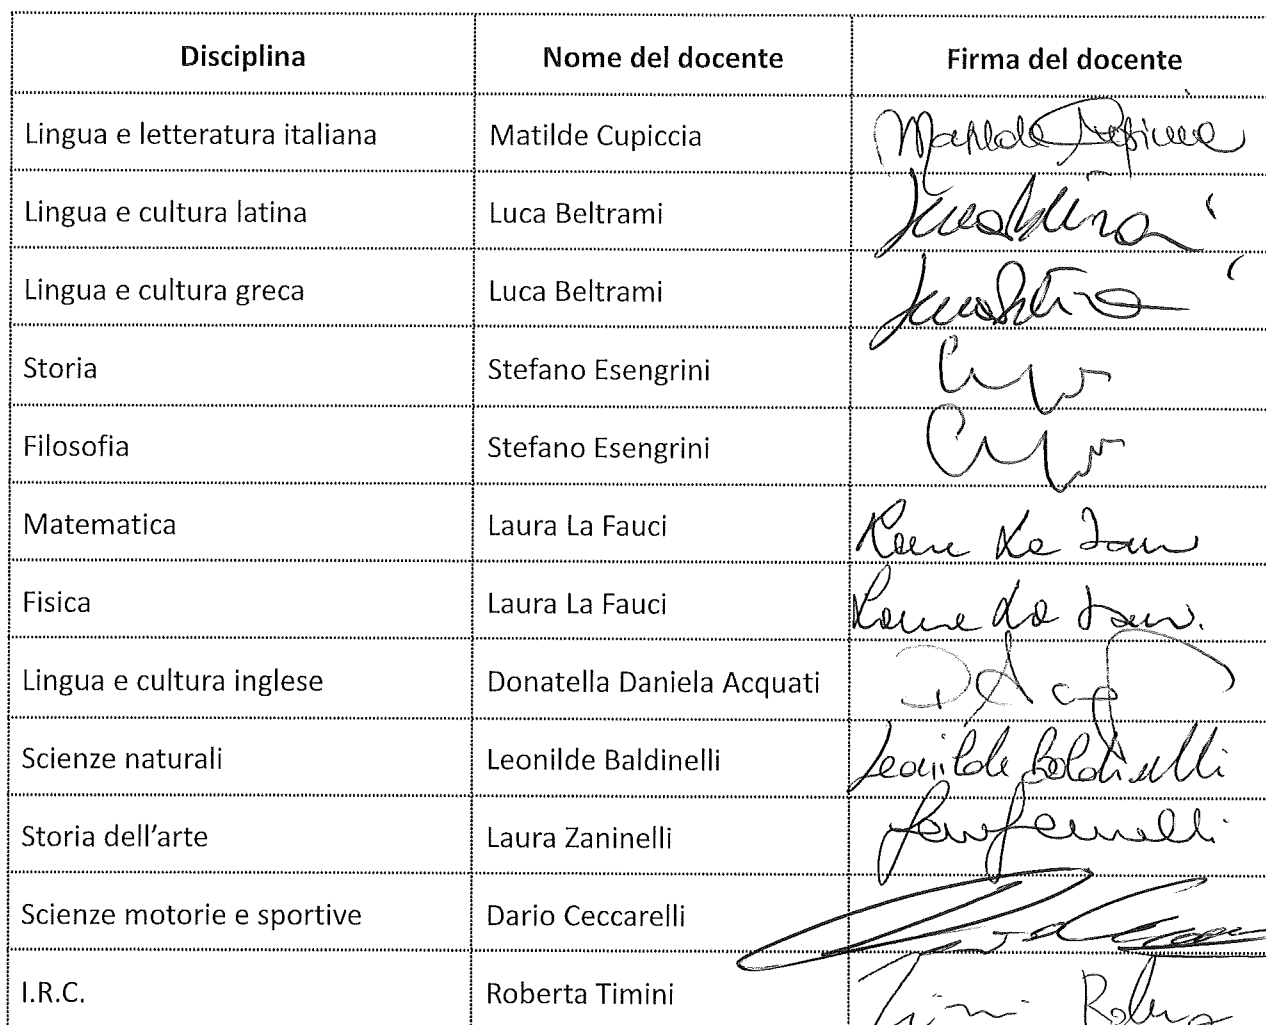 Disciplina Nome del docente Firma del docente
Lingua e letteratura italiana Matilde Cupiccia Matilde Cupiccia
Lingua e cultura latina Luca Beltrami
Lingua e cultura greca Luca Beltrami
Storia Stefano Esengrini
Filosofia Stefano Esengrini
Matematica Laura La Fauci
Fisica Laura La Fauci
Lingua e cultura inglese Donatella Daniela Acquati
Scienze naturali Leonilde Baldinelli Leonilde Baldinelli
Storia dell'arte Laura Zaninelli
Scienze motorie e sportive Dario Ceccarelli
I.R.C. Roberta Timini